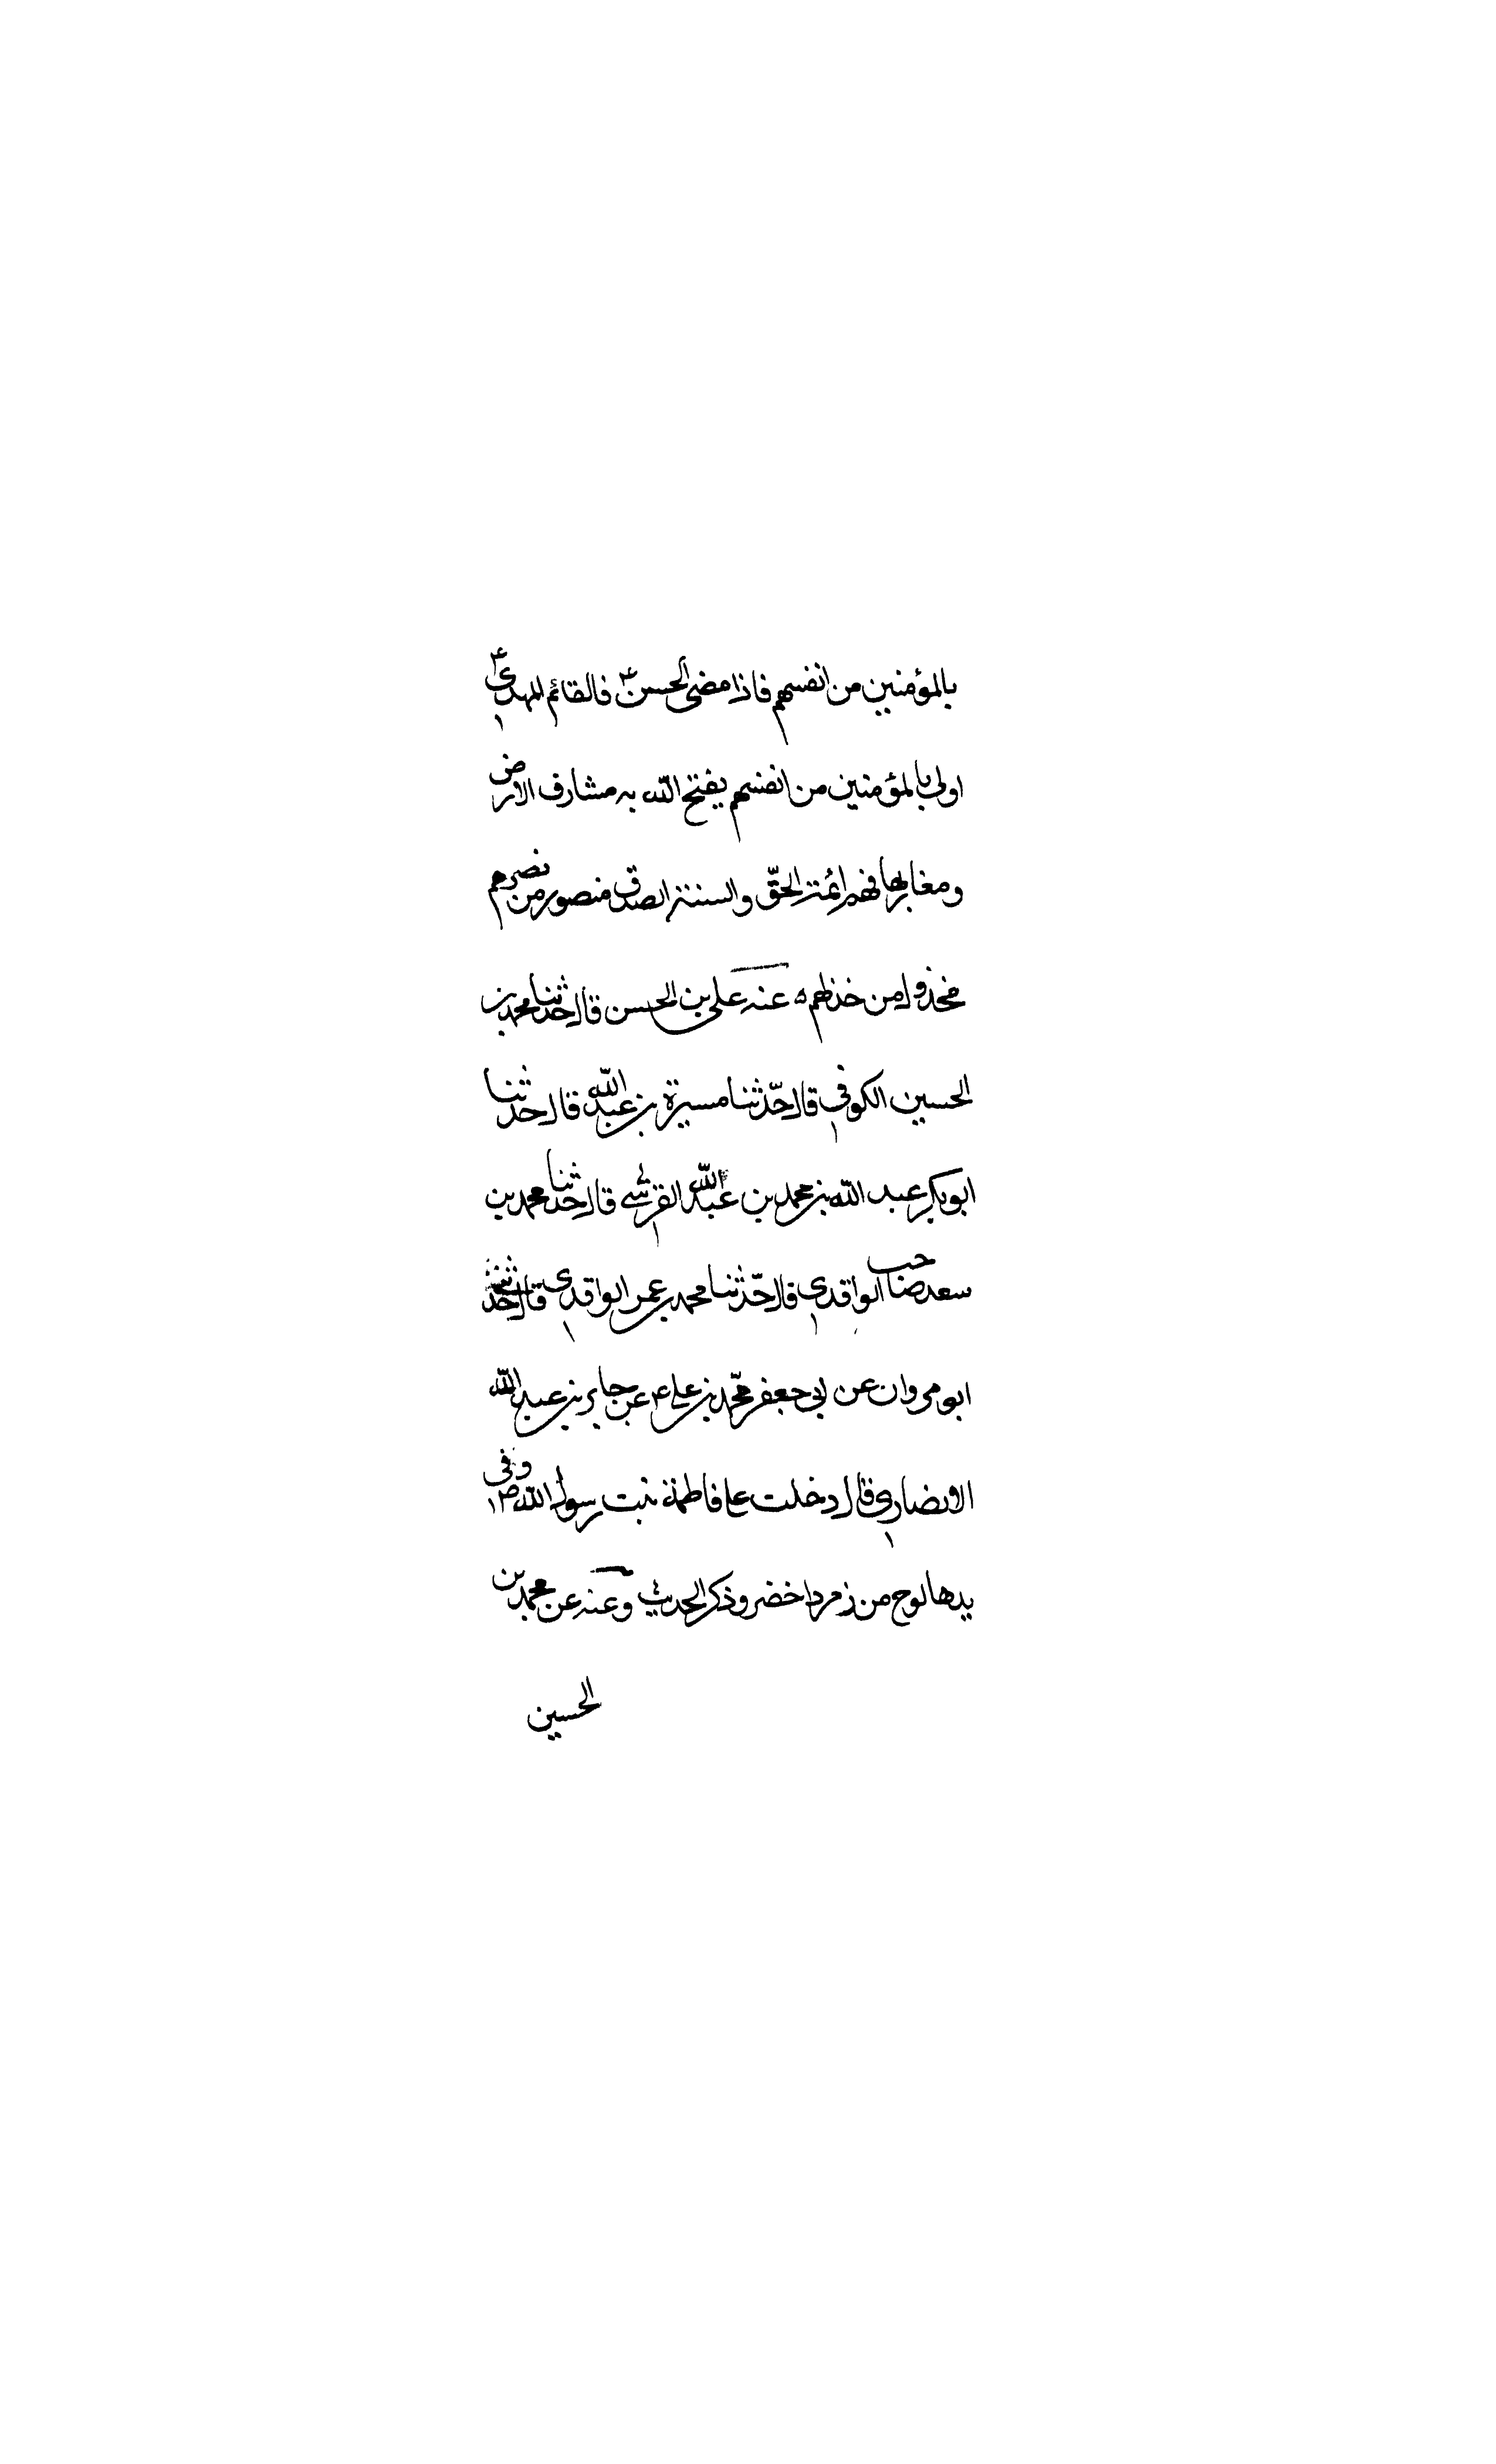 بالمؤمنين من انفسهم فاذا مضى الحسن ع فالقائم المهدى ع
اولى بالمؤمنين من انفسهم يفتح الله به مشارق الارض
ومغاربها فهم ائمة الحق والسنة الصدق منصور من نصرهم
مخذول من خذلهم ه عنه على بن الحسن قال حدثنا محمد بن
الحسين الكوفي قال حدّثنا مسيرة بن عبد الله قال حدثنا
ابو بكر عبد الله بن محمد بن عبد الله القرشي قال حدثنا محمد بن
سعد صاحب الواقدي قال حدّثنا محمد بن عمر الواقدي قال حدّثنى
ابو مروان عن ابي جعفر محمّد بن علي ع عن جابر بن عبد الله
الانصاري قال دخلت على فاطمة بنت رسول الله ص وفى
يدها لوح من زمرد اخضر وذكر الحديث وعنه عن محمد بن
الحسين